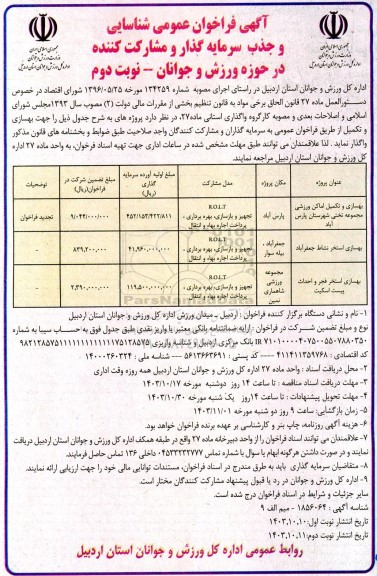 آگهی فراخوان عمومی شناسایی
و جذب سرمایه گذار و مشارکت کننده
در حوزه ورزش و جوانان – نوبت دوم
اداره کل ورزش و جوانان استان اردبیل در راستای اجرای مصوبه شماره ۱۳۴۲۵۹ مورخه ۱۳۹۶/۰۵/۲۵ شورای اقتصاد در خصوص
دستورالعمل ماده ۲۷ قانون الحاق برخی مواد به قانون تنظیم بخشی از مقررات مالی دولت (۲) مصوب سال ۱۳۹۳مجلس شورای
اسلامی و اصلاحات بعدی و مصوبه کارگروه واگذاری استانی ماده۲۷، در نظر دارد پروژه های به شرح جدول ذیل را جهت بهسازی
و تکمیل از طریق فراخوان عمومی به سرمایه گذاران و مشارکت کنندگان واجد صلاحیت طبق ضوابط و بخشنامه های قانون مذکور
واگذار نماید . لذا علاقمندان می توانند طبق مهلت مشخص شده در ساعات اداری جهت تهیه اسناد فرخوان، به واحد ماده ۲۷ اداره
کل ورزش و جوانان استان اردبیل مراجعه نمایند.
عنوان پروژه مکان پروژه مدل مشارکت مبلغ اولیه آورده سرمایه گذاری مبلغ تضمین شرکت در فراخوان(ریال) توضیحات
بهسازی و تکمیل اماکن ورزشی مجموعه تختی شهرستان پارس آباد پارس آباد R.O.L.T تجهیز و بازسازی، بهره برداری ، پرداخت اجاره بها و انتقال ۴۵۲/۱۵۳/۴۲۲/۸۱۱ ۹/۰۴۴/۰۰۰/۰۰۰ تجدید فراخوان
بهسازی استخر نشاط جعفرآباد جعفرآباد ، بیله سوار R.O.L.T تجهیز و بازسازی، بهره برداری ، پرداخت اجاره بها و انتقال ۴۱,۹۶۰,۰۰۰,۰۰۰ ۸۳۹,۲۰۰,۰۰۰ -
بهسازی استخر فجر و احداث پیست اسکیت مجموعه ورزشی شاهماری نمین R.O.L.T تجهیز و بازسازی، بهره برداری ، پرداخت اجاره بها و انتقال ۱۱۹,۵۰۰,۰۰۰,۰۰۰ ۲,۳۹۰,۰۰۰,۰۰۰ -
۱- نام و نشانی دستگاه برگزار کننده فراخوان : اردبیل ـ میدان ورزش اداره کل ورزش و جوانان استان اردبیل
نوع و مبلغ تضمین شرکت در فراخوان : ارایه ضمانتنامه بانکی معتبر یا واریز نقدی طبق جدول فوق به حساب سیبا به شماره
کد اقتصادی : ۴۱۱۴۱۱۳۵۹۷۶۸ --- کد پستی : ۵۶۱۳۶۶۳۶۹۱ --- شناسه ملی : ۱۴۰۰۰۲۶۰۳۲۴
۲- محل دریافت اسناد : واحد ماده ۲۷ اداره کل ورزش و جوانان استان اردبیل همه روزه وقت اداری
۳- مهلت دریافت اسناد مناقصه : تا ساعت ۱۴ روز دوشنبه مورخه ۱۴۰۳/۱۰/۱۷
۴- مهلت تحویل پیشنهادات : تا ساعت ۱۴روز یک شنبه مورخه ۱۴۰۳/۱۰/۳۰
۵- زمان بازگشایی: ساعت ۹ روز دو شنبه مورخه ۱۴۰۳/۱۱/۰۱
۶- هزینه آگهی روزنامه، چاپ بنر و کارشناسی بر عهده برنده فراخوان خواهد بود.
۷-علاقمندان می توانند اسناد فراخوان را از واحد دبیرخانه ماده ۲۷ واقع در طبقه همکف اداره کل ورزش و جوانان استان اردبیل دریافت
نمایند و در صورت داشتن هرگونه ابهام یا سوال با شماره تماس ۰۴۵۳۳۲۳۲۷۷۷ داخلی ۱۳۶ تماس حاصل فرمایند.
۸- متقاضیان سرمایه گذاری باید به طرق مندرج در اسناد فراخوان، مستندات توانایی مالی خود را جهت ارزیابی ارائه نمایند.
۹- اداره کل ورزش و جوانان در رد یا قبول پیشنهاد مشارکت کنندگان مختار است.
سایر جزئیات و شرایط در اسناد فراخوان درج شده است.
شناسه آگهی : ۱۸۵۶۰۶۴ - میم الف ۹
تاریخ انتشار نوبت اول:۱۴۰۳.۱۰.۱۰
تاریخ انتشار نوبت دوم:۱۴۰۳.۱۰.۱۱
روابط عمومی اداره کل ورزش و جوانان استان اردبیل